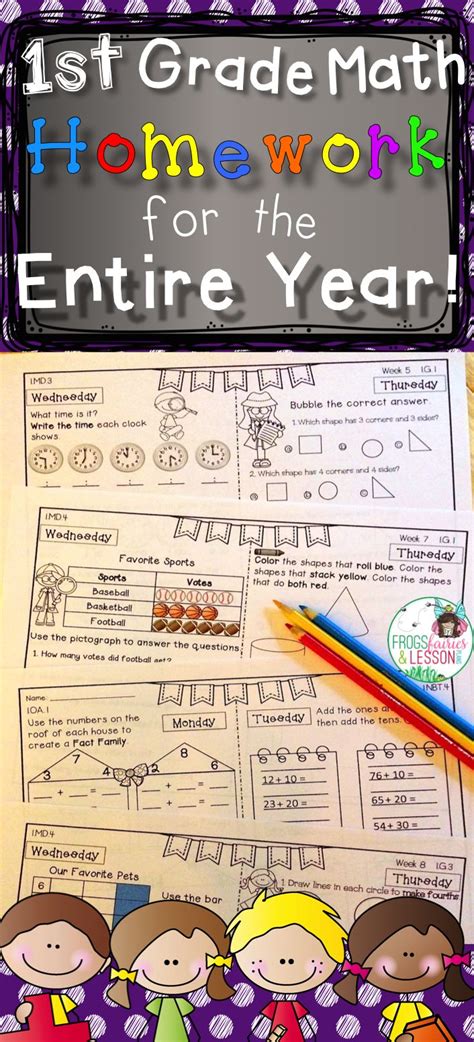 1st Grade Math
Homework
for the
Entire Year!
1MD.3
Wednesday
What time is it?
Write the time each clock
shows.
Week 5
1G.1
Thursday
Bubble the correct answer.
1. Which shape has 3 corners and 3 sides?
2. Which shape has 4 corners and 4 sides?
1MD.4
Wednesday
Favorite Sports
Sports Votes
Baseball
Basketball
Football
Use the pictograph to answer the questions
1. How many votes did football get?
Week 7
1G.1
Thursday
Color the shapes that roll blue. Color the
shapes that stack yellow. Color the shapes
that do both red.
FROGS fairies
& LESSON
Name:
1OA.1
Monday
Use the numbers on the
roof of each house to
create a Fact Family.
3 7 4
2 8 6
+ =
+ =
Tuesday
1NBT.4
Add the ones
then add the tens.
12 + 10 =
23 + 20 =
76 + 10 =
65 + 20 =
54 + 30 =
1MD.4
Wednesday
Our Favorite Pets
6
5
Use the bar
Week 8
1G.3
Thursday
1 Draw lines in each circle to make fourths